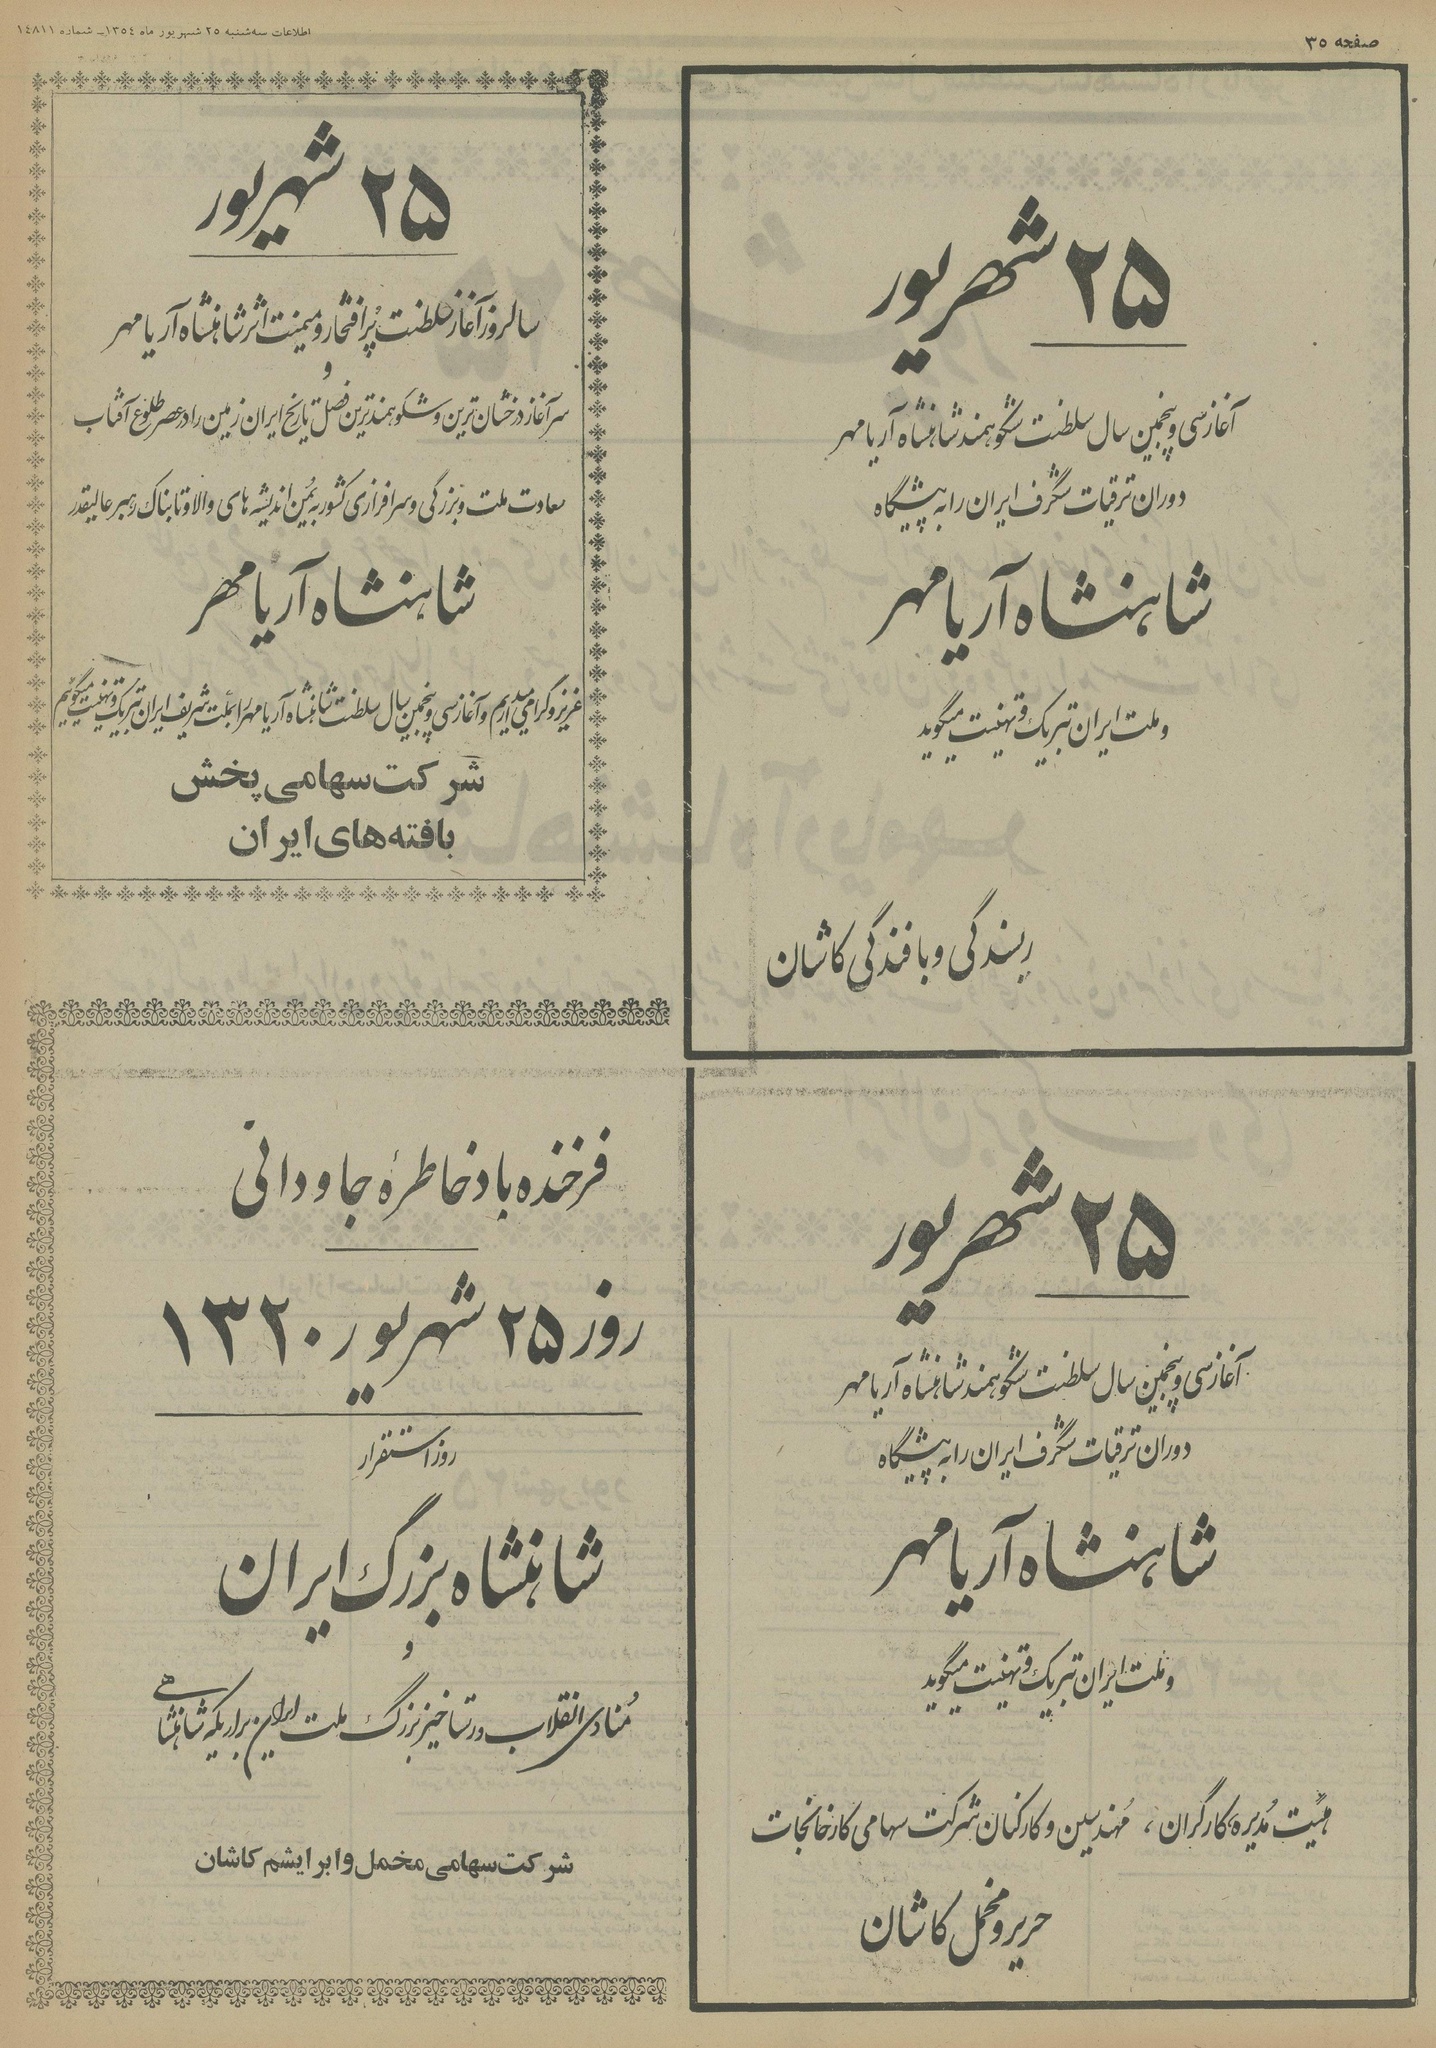 صفحه ۳۵
اطلاعات سه‌شنبه ۲۵ شهریور ماه ۱۳۵۴ـ شماره ۱۴۸۱۱
۲۵ شهریور
آغاز سی و پنجمین سال سلطنت شکوهمند شاهنشاه آریامهر
دوران ترقیات شگرف ایران را به پیشگاه
شاهنشاه آریامهر
و ملت ایران تبریک و تهنیت میگوید
ریسندگی و بافندگی کاشان
۲۵ شهریور
سالروز آغاز سلطنت پُرافتخار و میمنت اثر شاهنشاه آریامهر
و
سرآغاز درخشان‌ترین و شکوهمندترین فصل تاریخ ایران زمین را در عصر طلوع آفتاب
سعادت ملت و بزرگی و سرافرازی کشور به یُمن اندیشه های والا و تابناک رهبر عالیقدر
شاهنشاه آریامهر
عزیز و گرامی میداریم و آغاز سی و پنجمین سال سلطنت شاهنشاه آریامهر را بملت شریف ایران تبریک و تهنیت میگوئیم
شرکت سهامی پخش
بافته‌های ایران
۲۵ شهریور
آغاز سی و پنجمین سال سلطنت شکوهمند شاهنشاه آریامهر
دوران ترقیات شگرف ایران را به پیشگاه
شاهنشاه آریامهر
و ملت ایران تبریک و تهنیت میگوید
هیئت مُدیره، کارگران ، مُهندسین و کارکنان شرکت سهامی کارخانجات
حریر و مخمل کاشان
فرخنده باد خاطرهٔ جاودانی
روز ۲۵ شهریور ۱۳۲۰
روز استقرار
شاهنشاه بزرگ ایران
و
مُنادی انقلاب و رستاخیز بزرگ ملت ایران بر اریکه شاهنشاهی
شرکت سهامی مخمل و ابریشم کاشان